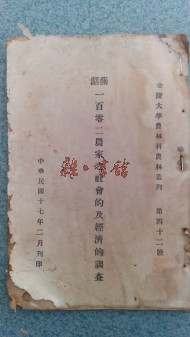 金陵大學農林科農林叢刊 第四十二號
蕪湖
一百零二農家之社會的及經濟的調查
中華民國十七年二月刊印